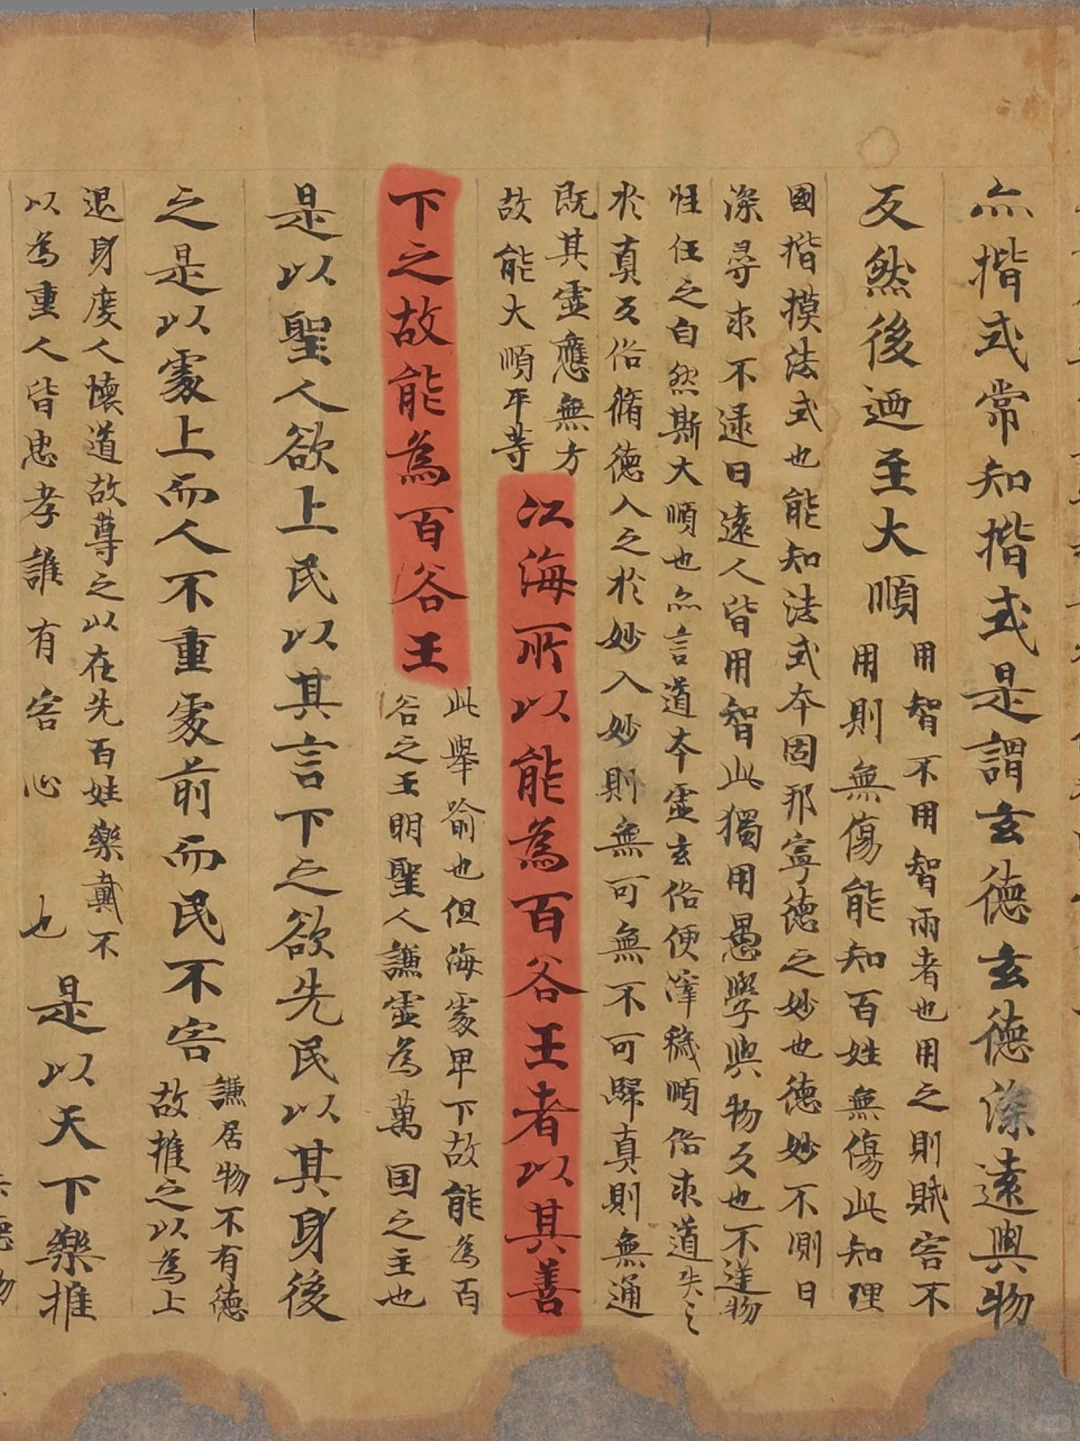 亦揩式常知揩式是謂玄德玄德深遠與物
反然後迺至大順
用智不用智兩者也用之則賊害不
用則無傷能知百姓無傷此知理
國揩摸法式也能知法式夲固邦寧德之妙也德妙不測日
深尋求不逮日遠人皆用智此獨用愚學與物反也不逆物
性任之自然斯大順也亦言道夲靈玄俗便滓穢順俗求道失之
扵真反俗脩德入之扵妙入妙則無可無不可歸真則無通
既其靈應無方
故能大順平等
江海所以能為百谷王者以其善
下之故能為百谷王
此舉喻也但海䖏卑下故能為百
谷之王明聖人謙虛為萬国之主也
是以聖人欲上民以其言下之欲先民以其身後
之是以䖏上而人不重䖏前而民不害
謙居物不有德
故推之以為上
退身度人懷道故尊之以在先百姓樂戴不
以為重人皆忠孝誰有害心也
是以天下樂推